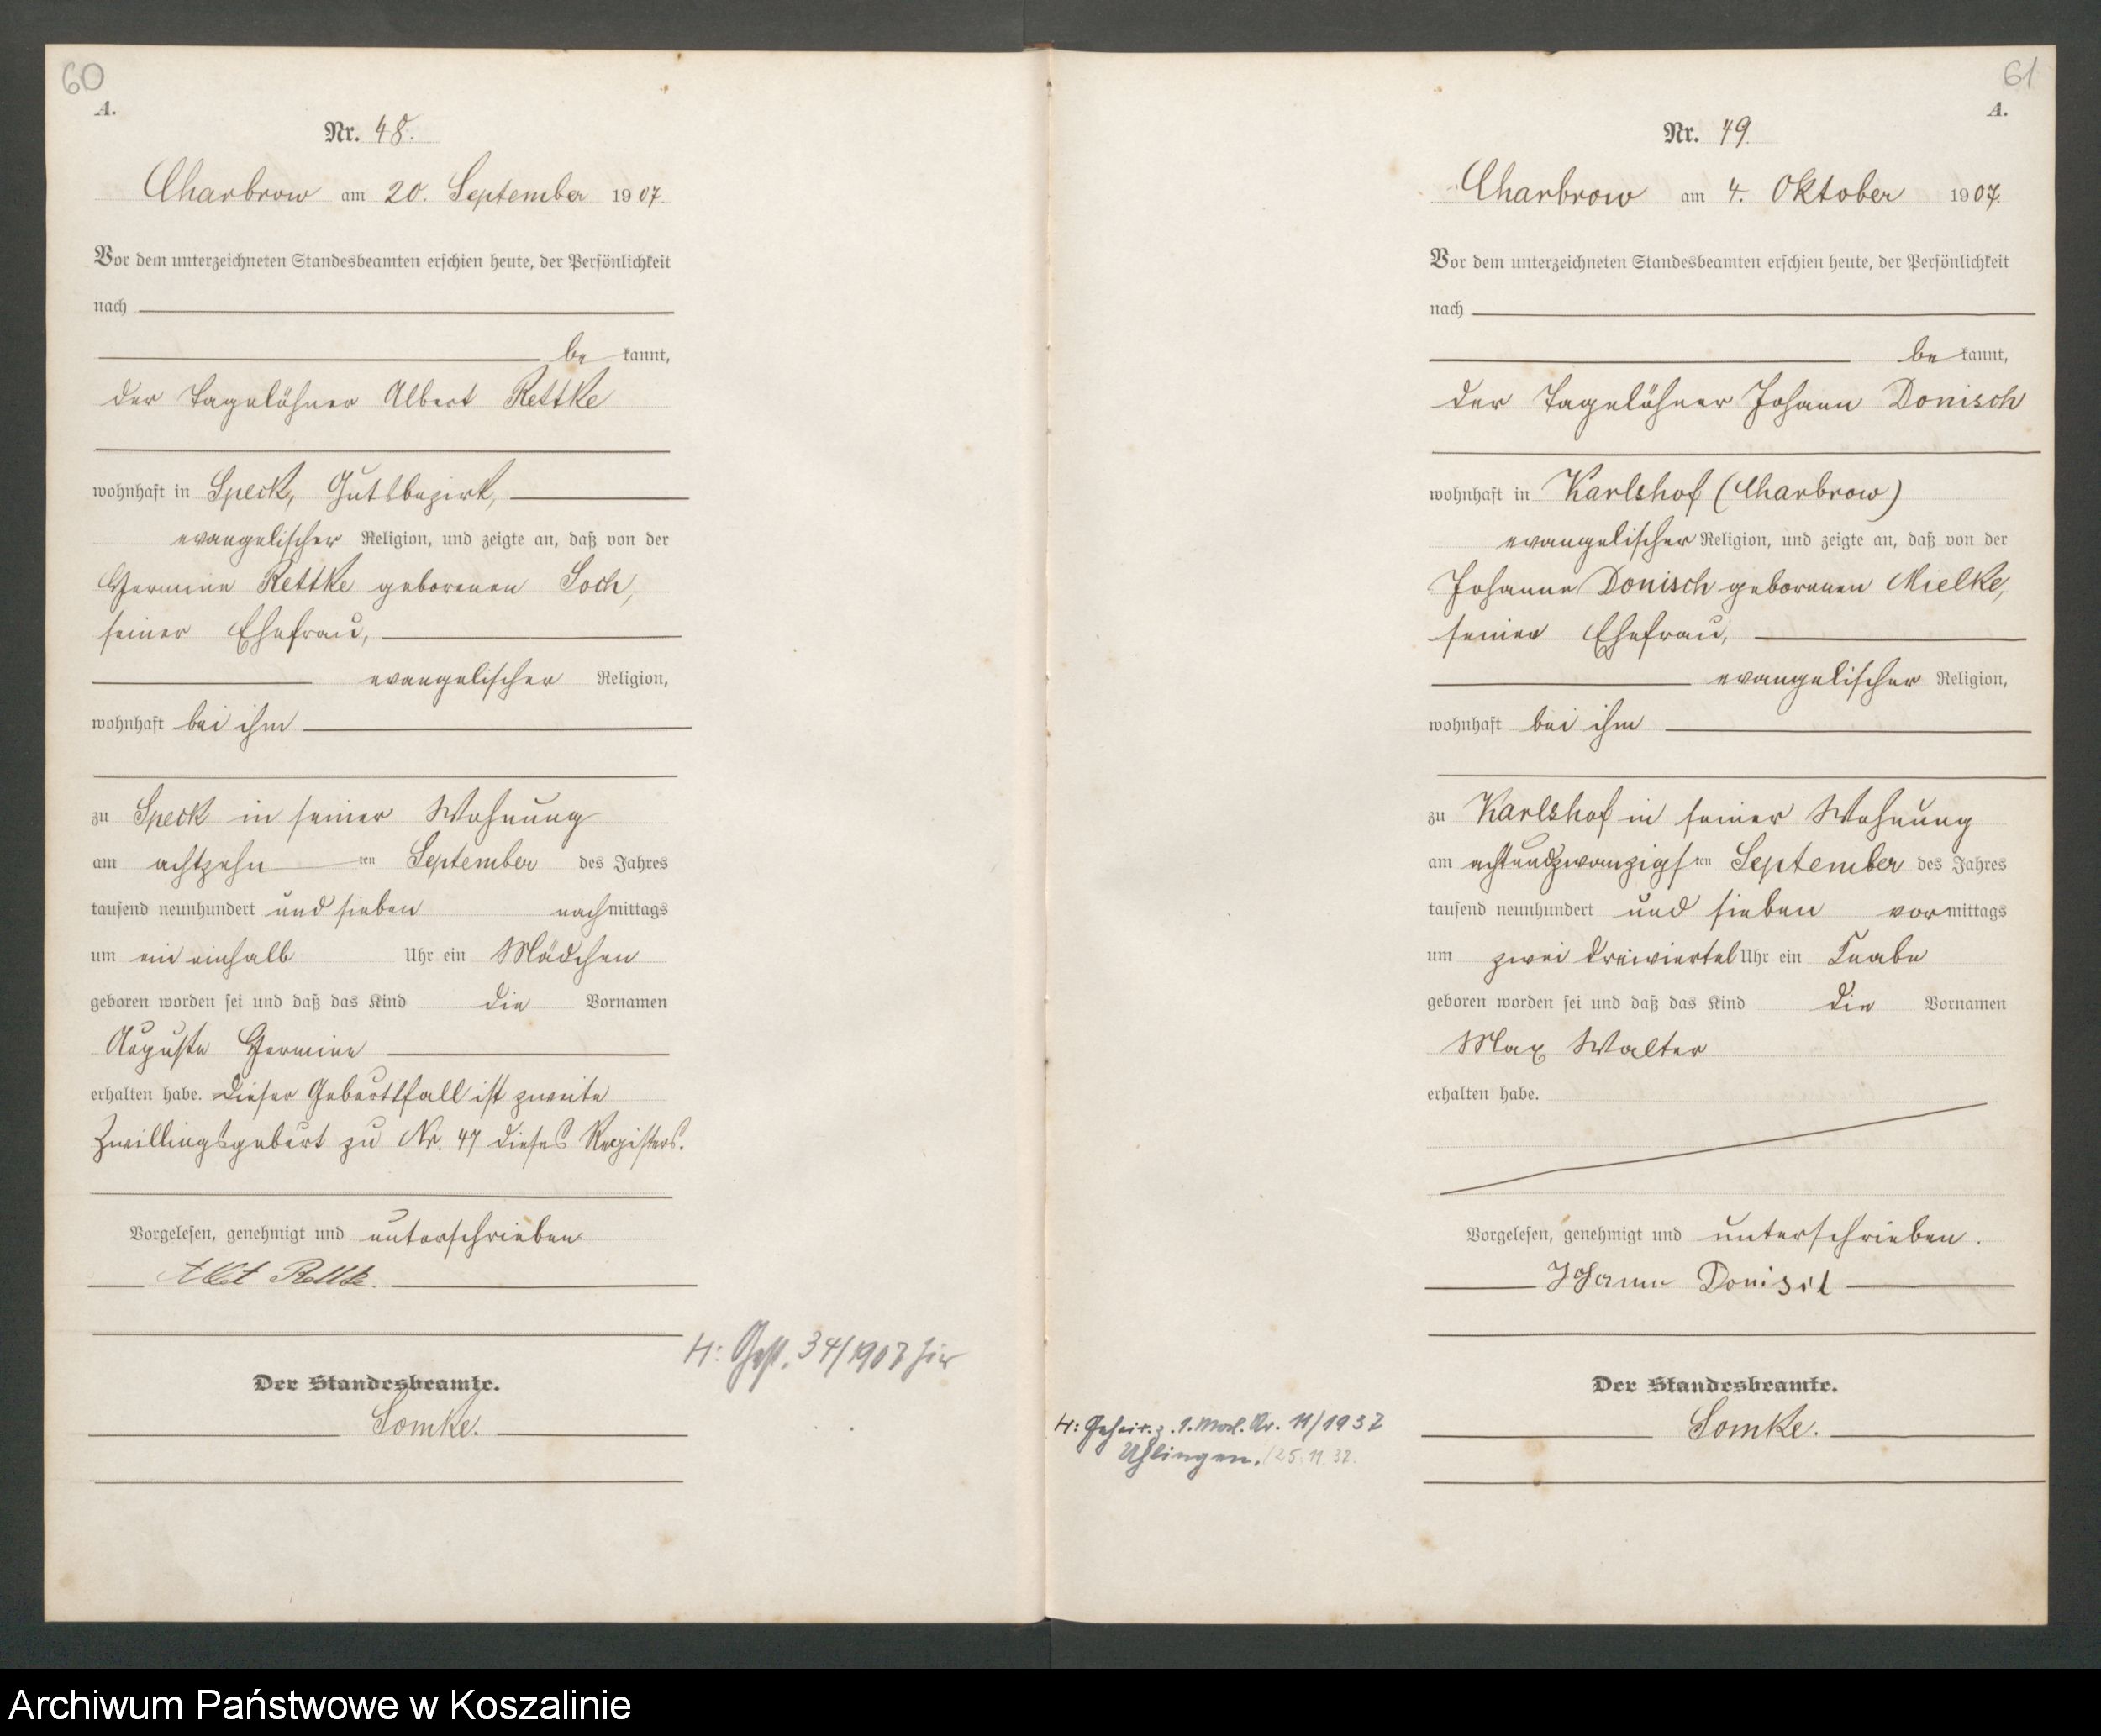 60
A.
Nr. 48.
Charbrow am 20. September 1907.
Vor dem unterzeichneten Standesbeamten erschien heute, der Persönlichkeit
nach
be kannt,
der Tagelöhner Albert Rettke
wohnhaft in Speck, Gutsbezirk,
evangelischer Religion, und zeigte an, daß von der
Hermine Rettke geborenen Soch,
seiner Ehefrau,
evangelischer Religion,
wohnhaft bei ihm
zu Speck in seiner Wohnung
am achtzehn ten September des Jahres
tausend neunhundert und sieben nachmittags
um ein einhalb Uhr ein Mädchen
geboren worden sei und daß das Kind die Vornamen
Auguste Hermine
erhalten habe. Dieser Geburtsfall ist zweite
Zwillingsgeburt zu Nr. 47 dieses Registers.
Vorgelesen, genehmigt und unterschrieben
Rettke.
Der Standesbeamte.
Somke.
H: Gest. 34/1907 hier
61
A.
Nr. 49.
Charbrow am 4. Oktober 1907.
Vor dem unterzeichneten Standesbeamten erschien heute, der Persönlichkeit
nach
be kannt,
der Tagelöhner Johann Donisch
wohnhaft in Karlshof (Charbrow)
evangelischer Religion, und zeigte an, daß von der
Johanne Donisch geborenen Mielke,
seiner Ehefrau,
evangelischer Religion,
wohnhaft bei ihm
zu Karlshof in seiner Wohnung
am achtundzwanzigsten September des Jahres
tausend neunhundert und sieben vormittags
um zwei dreiviertel Uhr ein Knabe
geboren worden sei und daß das Kind die Vornamen
Max Walter
erhalten habe.
Vorgelesen, genehmigt und unterschrieben.
Johann Donisch
Der Standesbeamte.
Somke.
H: Geheir. z. 1. Mal. Nr. 11/1937
Uhlingen. /25.11.37.
Archiwum Państwowe w Koszalinie